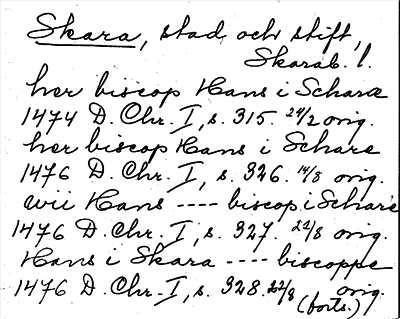 Skara, stad och stift,
Skarab. l.
her biscop Hans i Scharæ
1474 D. Chr. I, s. 315. 24/2 orig.
her biscop Hans i Schare
1476 D. Chr. I, s. 326. 14/8 orig.
wii Hans ---- biscop i Schare
1476 D. Chr. I, s. 327. 22/8 orig.
Hans i Skara ---- biscoppe
1476 D. Chr. I, s. 328. 22/8 orig.
(forts.)